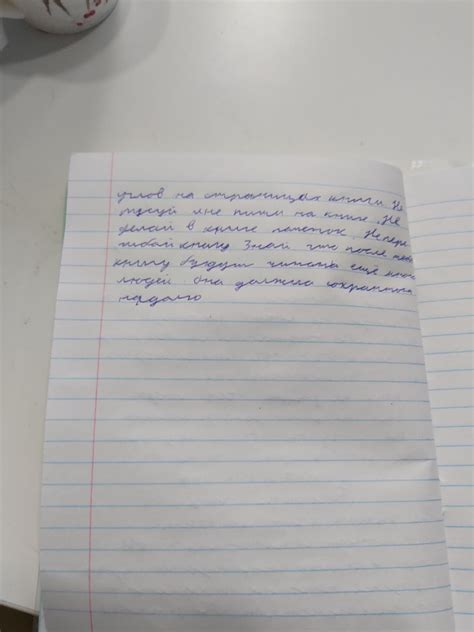 углов на страницах книги. Не
рисуй и не пиши на книге. Не
делай в книге пометок. Не пере
гибай книгу. Знай что после тебя
книгу будут читать ещё много
людей. Она должна сохраниться
надолго